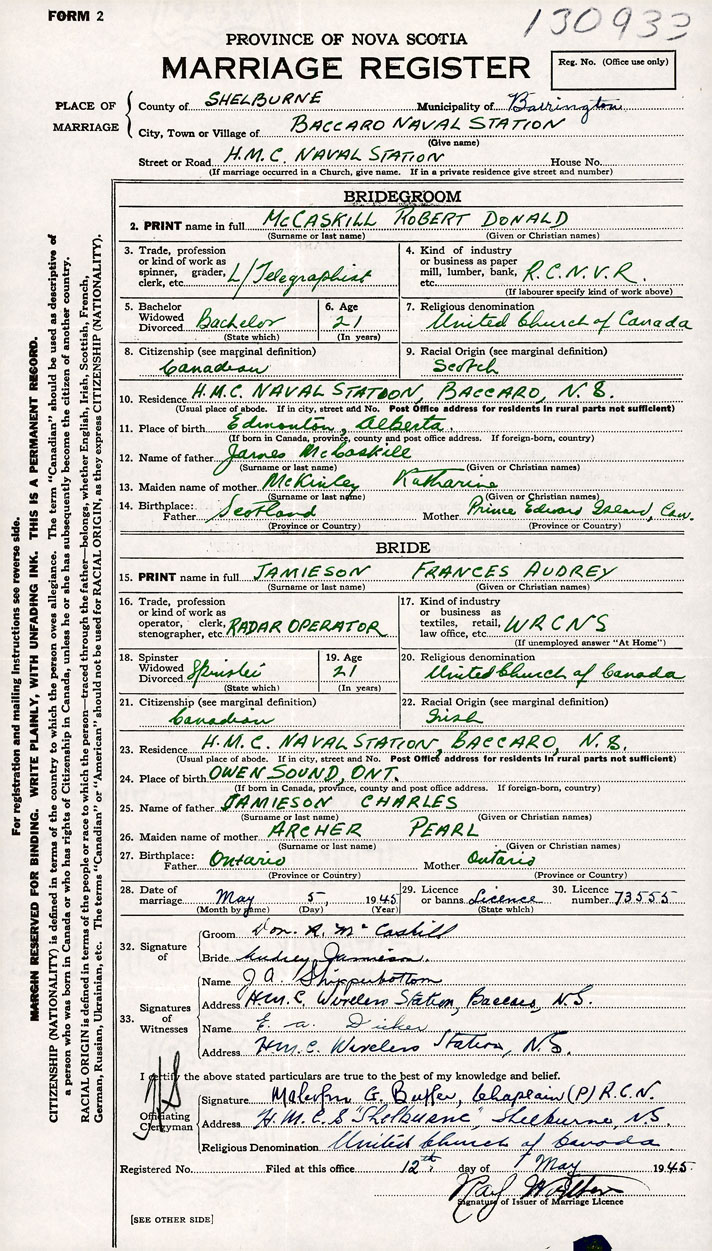 FORM 2
130933
PROVINCE OF NOVA SCOTIA
MARRIAGE REGISTER
Reg. No. (Office use only)
PLACE OF MARRIAGE
County of SHELBURNE Municipality of Barrington
City, Town or Village of BACCARO NAVAL STATION
(Give name)
Street or Road H.M.C. NAVAL STATION House No.
(If marriage occurred in a Church, give name. If in a private residence give street and number)
BRIDEGROOM
2. PRINT name in full McCASKILL ROBERT DONALD
(Surname or last name) (Given or Christian names)
3. Trade, profession or kind of work as spinner, grader, clerk, etc. L/Telegraphist
4. Kind of industry or business as paper mill, lumber, bank, etc. R.C.N.V.R.
(If labourer specify kind of work above)
5. Bachelor Widowed Divorced Bachelor
(State which)
6. Age 21
(In years)
7. Religious denomination
United Church of Canada
8. Citizenship (see marginal definition)
Canadian
9. Racial Origin (see marginal definition)
Scotch
10. Residence H.M.C. NAVAL STATION, BACCARO, N.S.
(Usual place of abode. If in city, street and No. Post Office address for residents in rural parts not sufficient)
11. Place of birth Edmonton, Alberta.
(If born in Canada, province, county and post office address. If foreign-born, country)
12. Name of father James McCaskill
(Surname or last name) (Given or Christian names)
13. Maiden name of mother McKinley Katharine
(Surname or last name) (Given or Christian names)
14. Birthplace: Father Scotland Mother Prince Edward Island, Can.
(Province or Country) (Province or Country)
BRIDE
15. PRINT name in full JAMIESON FRANCES AUDREY
(Surname or last name) (Given or Christian names)
16. Trade, profession or kind of work as operator, clerk, stenographer, etc. RADAR OPERATOR
17. Kind of industry or business as textiles, retail, law office, etc. WRCNS
(If unemployed answer "At Home")
18. Spinster Widowed Divorced Spinster
(State which)
19. Age 21
(In years)
20. Religious denomination
United Church of Canada
21. Citizenship (see marginal definition)
Canadian
22. Racial Origin (see marginal definition)
Irish
23. Residence H.M.C. NAVAL STATION, BACCARO, N.S.
(Usual place of abode. If in city, street and No. Post Office address for residents in rural parts not sufficient)
24. Place of birth OWEN SOUND, ONT.
(If born in Canada, province, county and post office address. If foreign-born, country)
25. Name of father JAMIESON CHARLES
(Surname or last name) (Given or Christian names)
26. Maiden name of mother ARCHER PEARL
(Surname or last name) (Given or Christian names)
27. Birthplace: Father Ontario Mother Ontario
(Province or Country) (Province or Country)
28. Date of marriage May 5, 1945
(Month by name) (Day) (Year)
29. Licence or banns Licence
(State which)
30. Licence number 73555
32. Signature of
Groom Don. R. McCaskill
Bride Audrey Jamieson.
33. Signatures of Witnesses
Name J.A. Shipperbottom
Address H.M.C. Wireless Station, Baccaro, N.S.
Name E. A. Dicker
Address H.M.C. Wireless Station, N.S.
I certify the above stated particulars are true to the best of my knowledge and belief.
Officiating Clergyman
Signature Malcolm G. Chaplain (P) R.C.N.
Address H.M.C.S "Shelburne", Shelburne, N.S.
Religious Denomination United Church of Canada
Registered No. Filed at this office 12th day of May 1945.
Signature of Issuer of Marriage Licence
[SEE OTHER SIDE]
For registration and mailing instructions see reverse side.
MARGIN RESERVED FOR BINDING. WRITE PLAINLY, WITH UNFADING INK. THIS IS A PERMANENT RECORD.
CITIZENSHIP (NATIONALITY) is defined in terms of the country to which the person owes allegiance. The term "Canadian" should be used as descriptive of
a person who was born in Canada or who has rights of Citizenship in Canada, unless he or she has subsequently become the citizen of another country.
RACIAL ORIGIN is defined in terms of the people or race to which the person—traced through the father—belongs, whether English, Irish, Scottish, French,
German, Russian, Ukrainian, etc. The terms "Canadian" or "American" should not be used for RACIAL ORIGIN, as they express CITIZENSHIP (NATIONALITY).